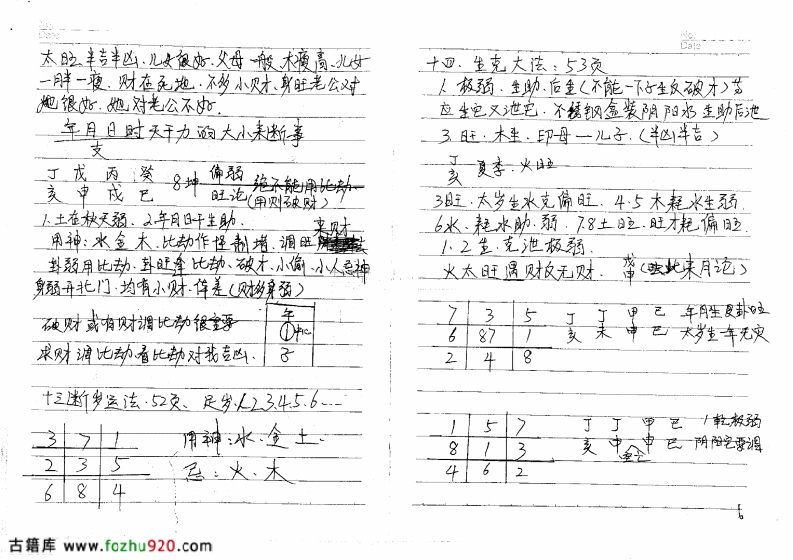 太旺.半吉半凶.儿女很好.父母一般.木瘦高.儿女
一胖一瘦.财在死地.不多小财.身旺老公对
她很好.她对老公不好.
年月日时天干力的大小来断事
支
丁戊丙癸 8坤 偏弱 绝不能用比劫
亥申戌巳 旺论 (用则破财)
1.土在秋天弱.2.年月日干生助. 来财
用神:水金木.比劫作怪制堵.调旺
卦弱用比劫.卦旺逢比劫.破才.小偷.小人忌神
身弱开北门.均有小财.体差(财多身弱)
破财或有财调比劫很重要
求财调比劫.看比劫对我吉凶.
午
①
子
十三断岁运法.52页、足岁.1.2.3.4.5.6……
3 7 1
2 3 5
6 8 4
用神:水.金土
忌:火.木
十四.生克大法:53页
1.极弱.生助.后金(不能一下子生反破才)
应生它又泄它.不锈钢盒装阴阳水生助后泄
3.旺.木生.印母—儿子.(半凶半吉)
丁
亥 夏季.火旺
3旺.太岁生水克偏旺.4.5木耗水生弱.
6水.耗水助.弱.7.8土旺.旺才耗偏旺.
1.2生.克泄极弱.
火太旺遇财反无财.
7 3 5
6 87 1
2 4 8
丁丁甲巳 年月生艮卦旺
亥未申巳 太岁生一年无灾
1 5 7
8 1 3
4 6 2
丁丁甲巳 1乾极弱
亥申申巳 阴阳宅要调
6
古籍库 www.fozhu920.com